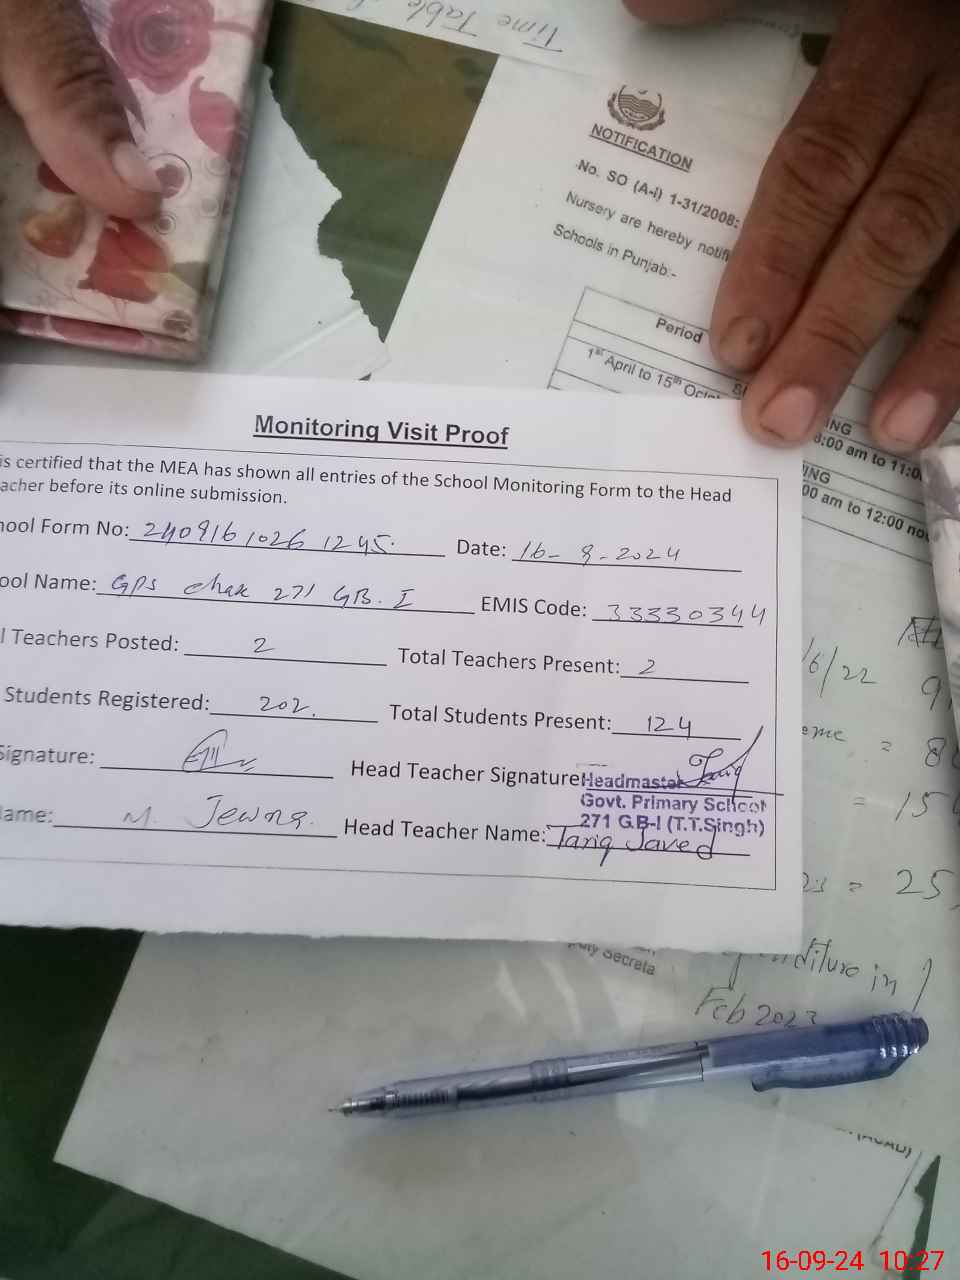 Time Table
NOTIFICATION
No. SO (A-I) 1-31/2008:
Nursery are hereby notifi
Schools in Punjab:-
Period
1st April to 15th Octo
ING
8:00 am to 11:0
ING
00 am to 12:00 no
Monitoring Visit Proof
is certified that the MEA has shown all entries of the School Monitoring Form to the Head
acher before its online submission.
hool Form No: 240916 1026 1245. Date: 16- 9-2024
ool Name: GPS chak 271 GB. I EMIS Code: 33330344
l Teachers Posted: 2 Total Teachers Present: 2
Students Registered: 202. Total Students Present: 124
Signature: Head Teacher Signature Tariq
Headmaster
Govt. Primary School
271 G.B-I (T.T.Singh)
ame: M. Head Teacher Name: Tariq Javed
/6/22 9
eme = 8
= 15
23 = 25
diture in
Feb 2023
uty Secreta
16-09-24 10:27